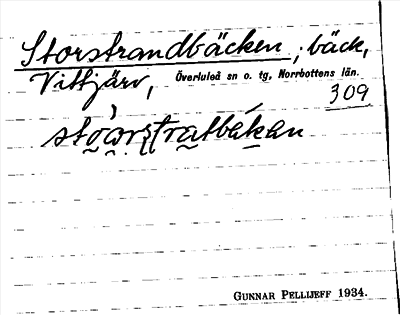 Storstrandbäcken, bäck,
Vittjärv, Överluleå sn o. tg, Norrbottens län.
309
stoarstratbakan
GUNNAR PELLIJEFF 1934.